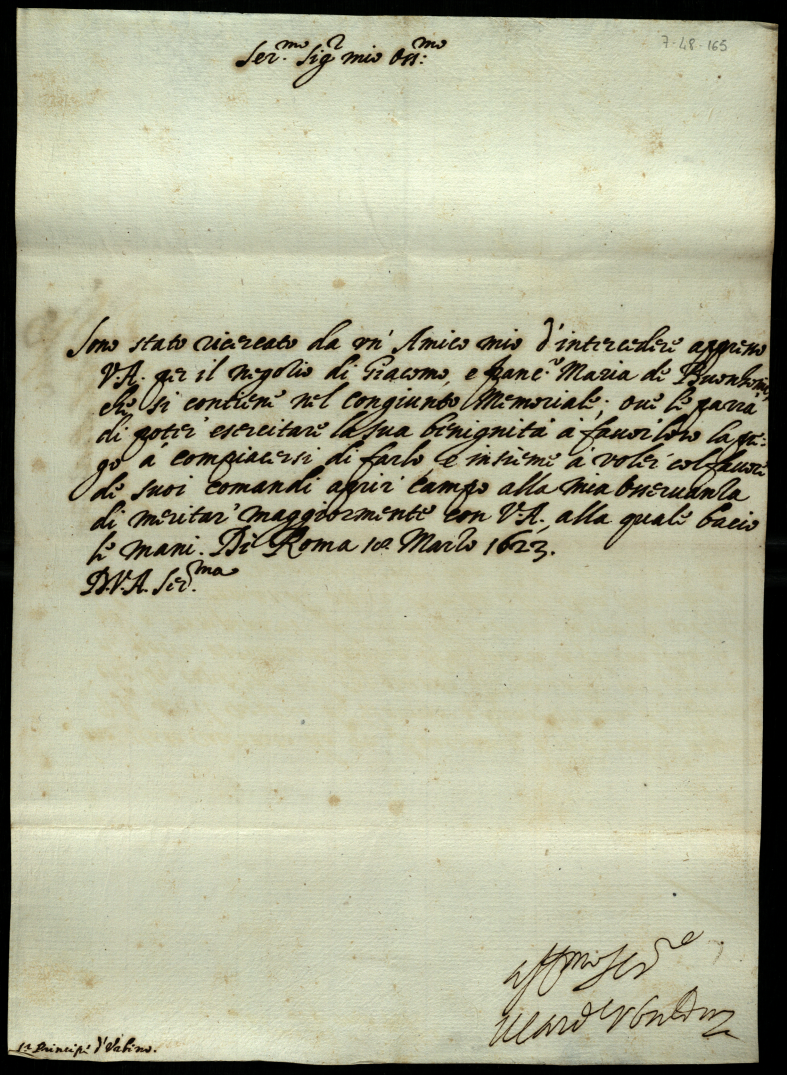 7-48-165
Ser.mo Sigr mio oss:mo
Sono stato ricercato da un' Amico mio d'intercedere appresso
V.A. per il negotio di Giacomo, e franc.o Maria de Buonhomi,
che si contiene nel congiunto Memoriale; ove le parrà
di poter' esercitare la sua benignità à favor loro la pre=
go à compiacersi di farlo, e insieme à voler' col favore
de suoi comandi aprir' campo alla mia osservanza
di meritar' maggiormente con V.A. alla quale bacio
le mani. Di Roma 18 Marzo 1623.
D.V.A. Ser.ma
aff.mo Ser.re
Il Card
S.r Principe d'Urbino.